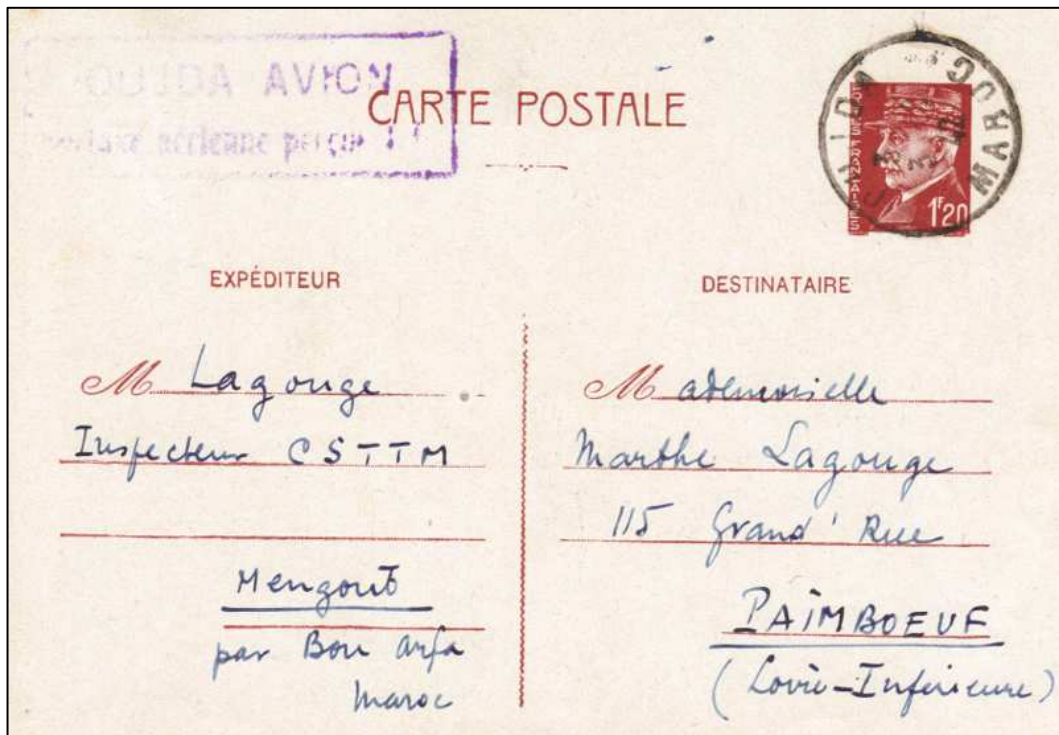 OUJDA AVION
aérienne perçue
CARTE POSTALE
OUJDA MAROC
POSTES FRANÇAISES
1F20
EXPÉDITEUR
M Lagouge
Inspecteur CSTTM
Mengoub
par Bou Arfa
Maroc
DESTINATAIRE
Mademoiselle
Marthe Lagouge
115 Grand' Rue
PAIMBOEUF
(Loire-Inférieure)